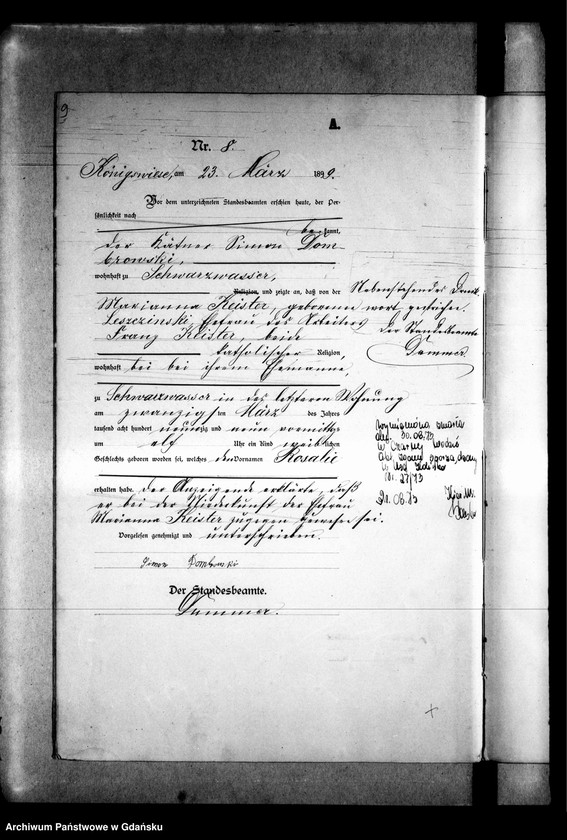 9
A.
Nr. 8.
Königswiese, am 23. März 1899.
Vor dem unterzeichneten Standesbeamten erschien heute, der Per-
sönlichkeit nach
bekannt,
der Kätner Simon Dom-
browski,
wohnhaft zu Schwarzwasser,
Religion, und zeigte an, daß von der
Marianna Keisler, geborenen
Leszczinski Ehefrau des Arbeiters
Franz Keisler, beide
katholischer Religion
wohnhaft bei ihrem Ehemanne,
zu Schwarzwasser in des letzteren Wohnung
am zwanzigsten März des Jahres
tausend acht hundert neunzig und neun vormittags
um elf Uhr ein Kind weiblichen
Geschlechts geboren worden sei, welches den Vornamen Rosalie
erhalten habe. Der Anzeigende erklärte, daß
er bei der Niederkunft der Ehefrau
Marianna Keisler zugegen gewesen sei.
Vorgelesen, genehmigt und unterschrieben.
Simon Dombrowski
Der Standesbeamte.
Dammer.
Nebenstehendes
wort gestrichen.
Der Standesbeamte
Dammer.
Wymieniona zmarła
dn. 30.06.73
w Czarnej Wodzie
20.08.73
Archiwum Państwowe w Gdańsku